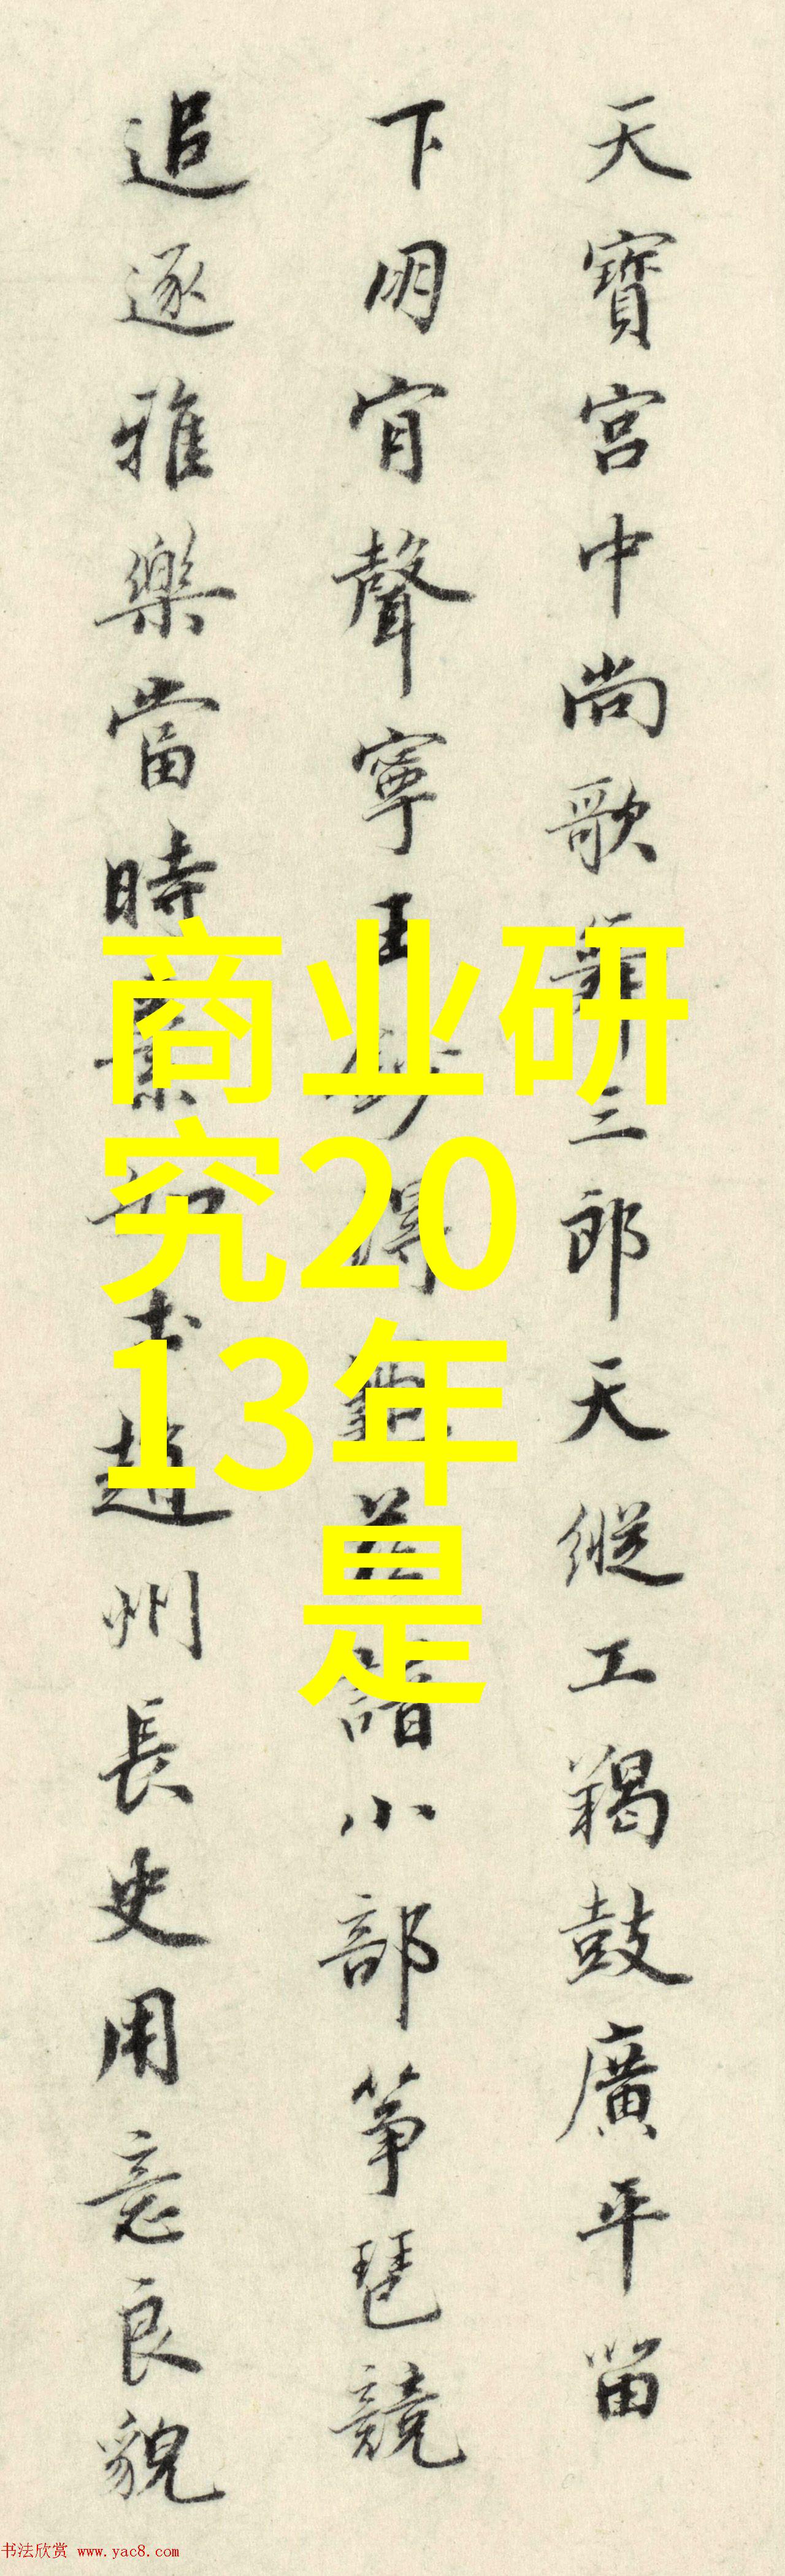 天寶宮中尚歌舞三郎天縱工羯鼓廣平留
下朋肯聲寧王
得
譜小部箏琶競
追逐雅樂當時
趙州長史用意良貌
商业研
究20
13年
是
书法欣赏 www.yac8.com